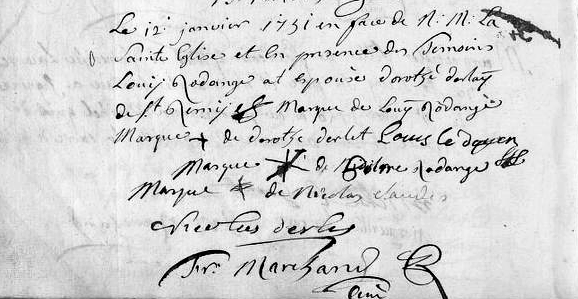 Le 12e janvier 1751 en face de N. M. La
Sainte Eglise et En presence des Temoins
Louij Rodange at Epousé dorothé derlet
de St Remij Marque de Louij Rodange
Marque + de dorothe derlet Louis le doyen
Marque de Rodange
Marque de Nicolas claudes
Nicolas derlet
Fr. Marchand
Curé